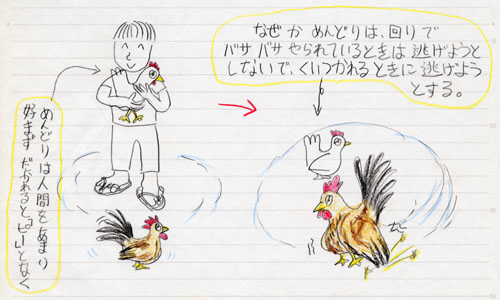 めんどりは人間をあまり
好まず だかれると「ピー」となく
なぜか めんどりは、回りで
バサバサやられているときは 逃げようと
しないで、くいつかれるときに 逃げよう
とする。